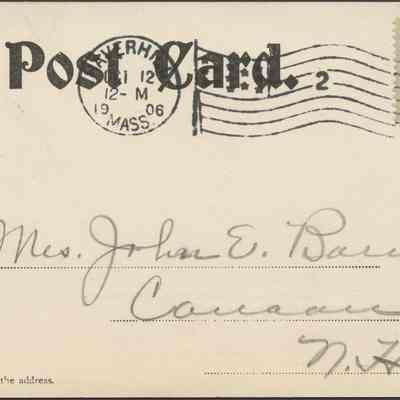 Post Card.
HAVERHILL
12
12-M
19 06
MASS.
2
Mrs. John E. Bar
Canaan
N.H
the address.